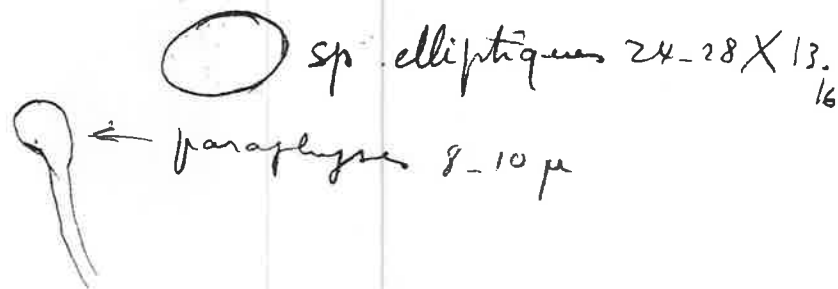 sp. elliptiques 24-28 X 13.
16
paraphyses 8-10 µ